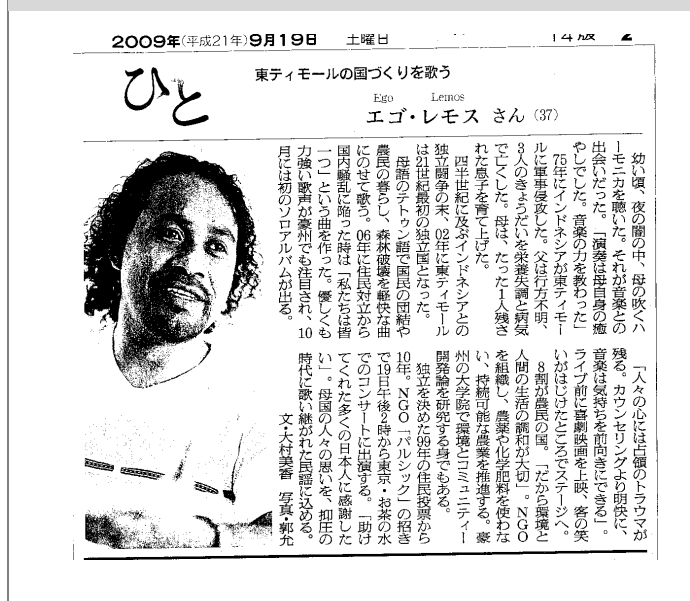 2009年(平成21年)9月19日 土曜日 14版 2
ひと
東ティモールの国づくりを歌う
Ego Lemos
エゴ・レモス さん (37)
幼い頃、夜の闇の中、母の吹くハ
ーモニカを聴いた。それが音楽との
出会いだった。「演奏は母自身の癒
やしでした。音楽の力を教わった」
75年にインドネシアが東ティモー
ルに軍事侵攻した。父は行方不明、
3人のきょうだいを栄養失調と病気
で亡くした。母は、たった1人残さ
れた息子を育て上げた。
四半世紀に及ぶインドネシアとの
独立闘争の末、02年に東ティモール
は21世紀最初の独立国となった。
母語のテトゥン語で国民の団結や
農民の暮らし、森林破壊を軽快な曲
にのせて歌う。06年に住民対立から
国内騒乱に陥った時は「私たちは皆
一つ」という曲を作った。優しくも
力強い歌声が豪州でも注目され、10
月には初のソロアルバムが出る。
「人々の心には占領のトラウマが
残る。カウンセリングより明快に、
音楽は気持ちを前向きにできる」。
ライブ前に喜劇映画を上映、客の笑
いがはじけたところでステージへ。
8割が農民の国。「だから環境と
人間の生活の調和が大切」。NGO
を組織し、農薬や化学肥料を使わな
い、持続可能な農業を推進する。豪
州の大学院で環境とコミュニティー
開発論を研究する身でもある。
独立を決めた99年の住民投票から
10年。NGO「パルシック」の招き
で19日午後2時から東京・お茶の水
でのコンサートに出演する。「助け
てくれた多くの日本人に感謝した
い」。母国の人々の思いを、抑圧の
時代に歌い継がれた民謡に込める。
文・大村美香 写真・郭允